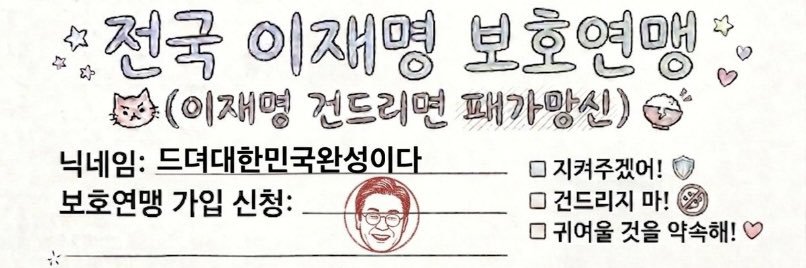 전국 이재명 보호연맹
(이재명 건드리면 패가망신)
닉네임: 드뎌대한민국완성이다
보호연맹 가입 신청:
지켜주겠어!
건드리지 마!
귀여울 것을 약속해!